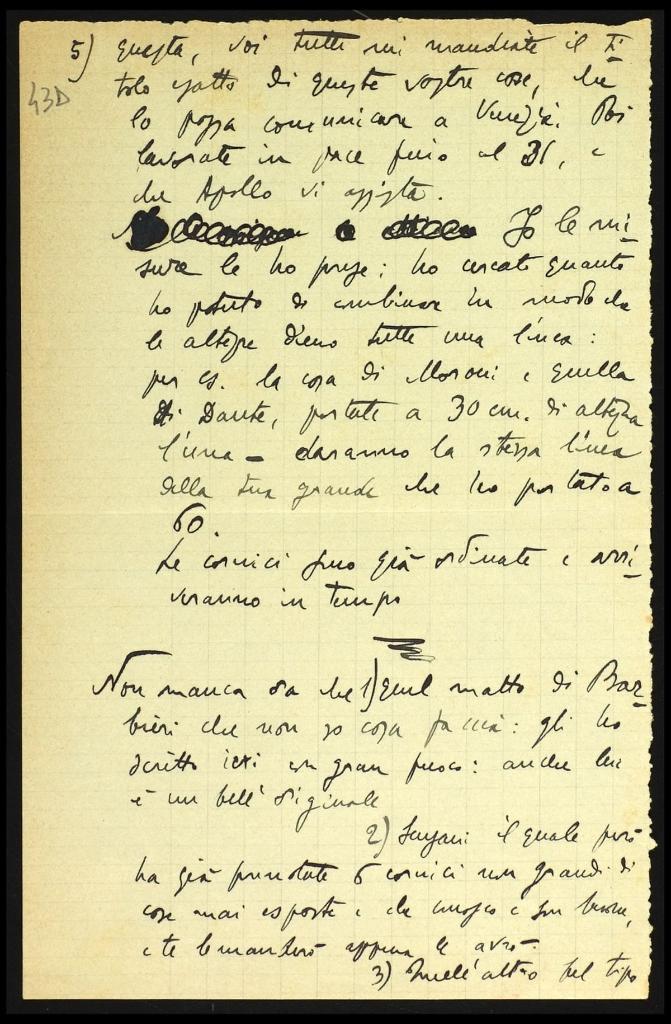 5) questa, voi tutti mi mandiate il ti-
tolo esatto di queste vostre cose, che
43D
lo possa comunicare a Venezia. Poi
lavorate in pace fino al 31, e
che Apollo vi assista.
Io le mi-
sure le ho prese; ho cercato quanto
ho potuto di combinare in modo che
le altezze dieno tutte una linea:
per es. la cosa di Moroni e quella
di Dante, portate a 30 cm. di altezza
l'una – daranno la stessa linea
della tua grande che ho portato a
60.
Le cornici sono già ordinate e arri-
veranno in tempo
Non manca ora che 1) quel matto di Bar-
bieri che non so cosa faccia: gli ho
scritto ieri con gran fuoco: anche lui
è un bell' originale
2) il quale però
ha già prenotate 6 cornici non grandi di
cose mai esposte e che conosco e son buone,
e te le manderò appena le avrò.
3) Quell' altro bel tipo